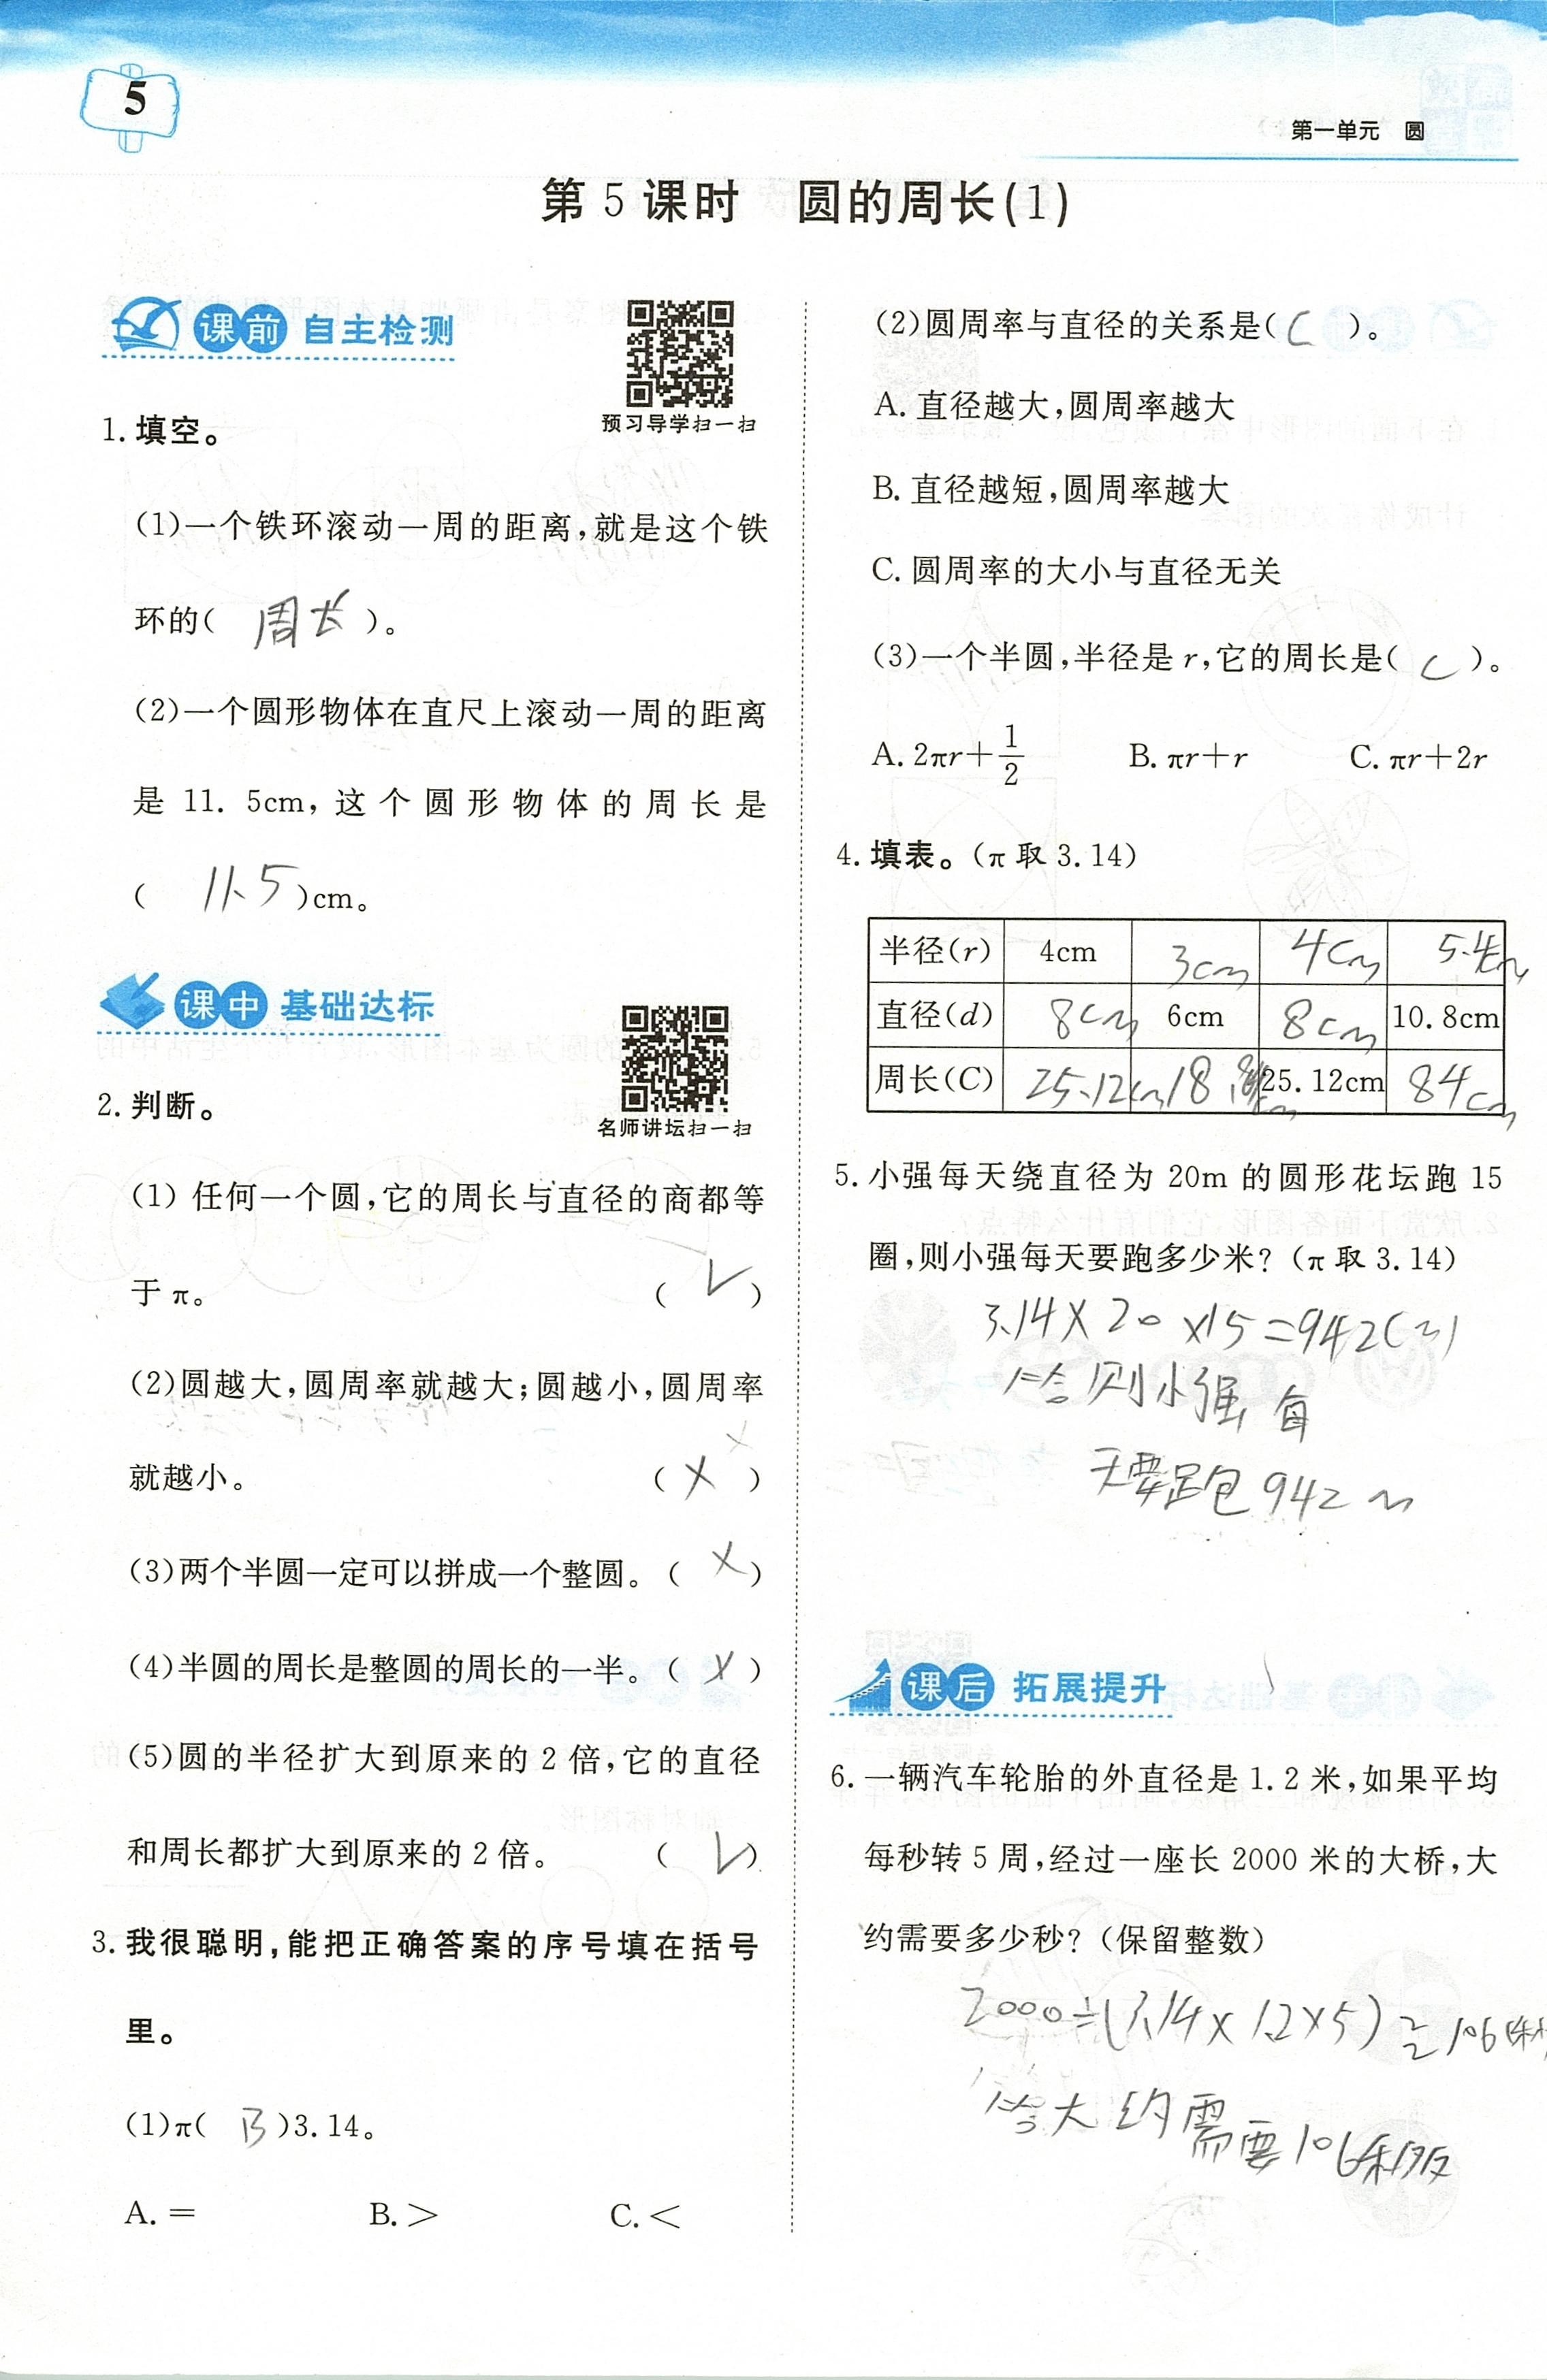 5
第一单元 圆
第 5 课时 圆的周长(1)
课前 自主检测
预习导学扫一扫
1. 填空。
(1)一个铁环滚动一周的距离,就是这个铁
环的( 周长 )。
(2)一个圆形物体在直尺上滚动一周的距离
是 11. 5cm,这个圆形物体的周长是
( 11.5 )cm。
课中 基础达标
名师讲坛扫一扫
2. 判断。
(1) 任何一个圆,它的周长与直径的商都等
于 π。 ( √ )
(2)圆越大,圆周率就越大;圆越小,圆周率
就越小。 ( × )
(3)两个半圆一定可以拼成一个整圆。( × )
(4)半圆的周长是整圆的周长的一半。( × )
(5)圆的半径扩大到原来的 2 倍,它的直径
和周长都扩大到原来的 2 倍。 ( √ )
3. 我很聪明,能把正确答案的序号填在括号
里。
(1)π( B )3.14。
A. = B. > C. <
(2)圆周率与直径的关系是( C )。
A. 直径越大,圆周率越大
B. 直径越短,圆周率越大
C. 圆周率的大小与直径无关
(3)一个半圆,半径是 r,它的周长是( C )。
A. 2πr+1/2 B. πr+r C. πr+2r
4. 填表。(π 取 3.14)
半径(r) 4cm 3cm 4cm 5.4cm
直径(d) 8cm 6cm 8cm 10.8cm
周长(C) 25.12cm 18. cm 25.12cm 84cm
5. 小强每天绕直径为 20m 的圆形花坛跑 15
圈,则小强每天要跑多少米?(π 取 3.14)
3.14×20×15=942(m)
答则小强每
天要跑942m
课后 拓展提升
6. 一辆汽车轮胎的外直径是 1.2 米,如果平均
每秒转 5 周,经过一座长 2000 米的大桥,大
约需要多少秒?(保留整数)
2000÷(3.14×1.2×5)≈106(秒
答大约需要106秒